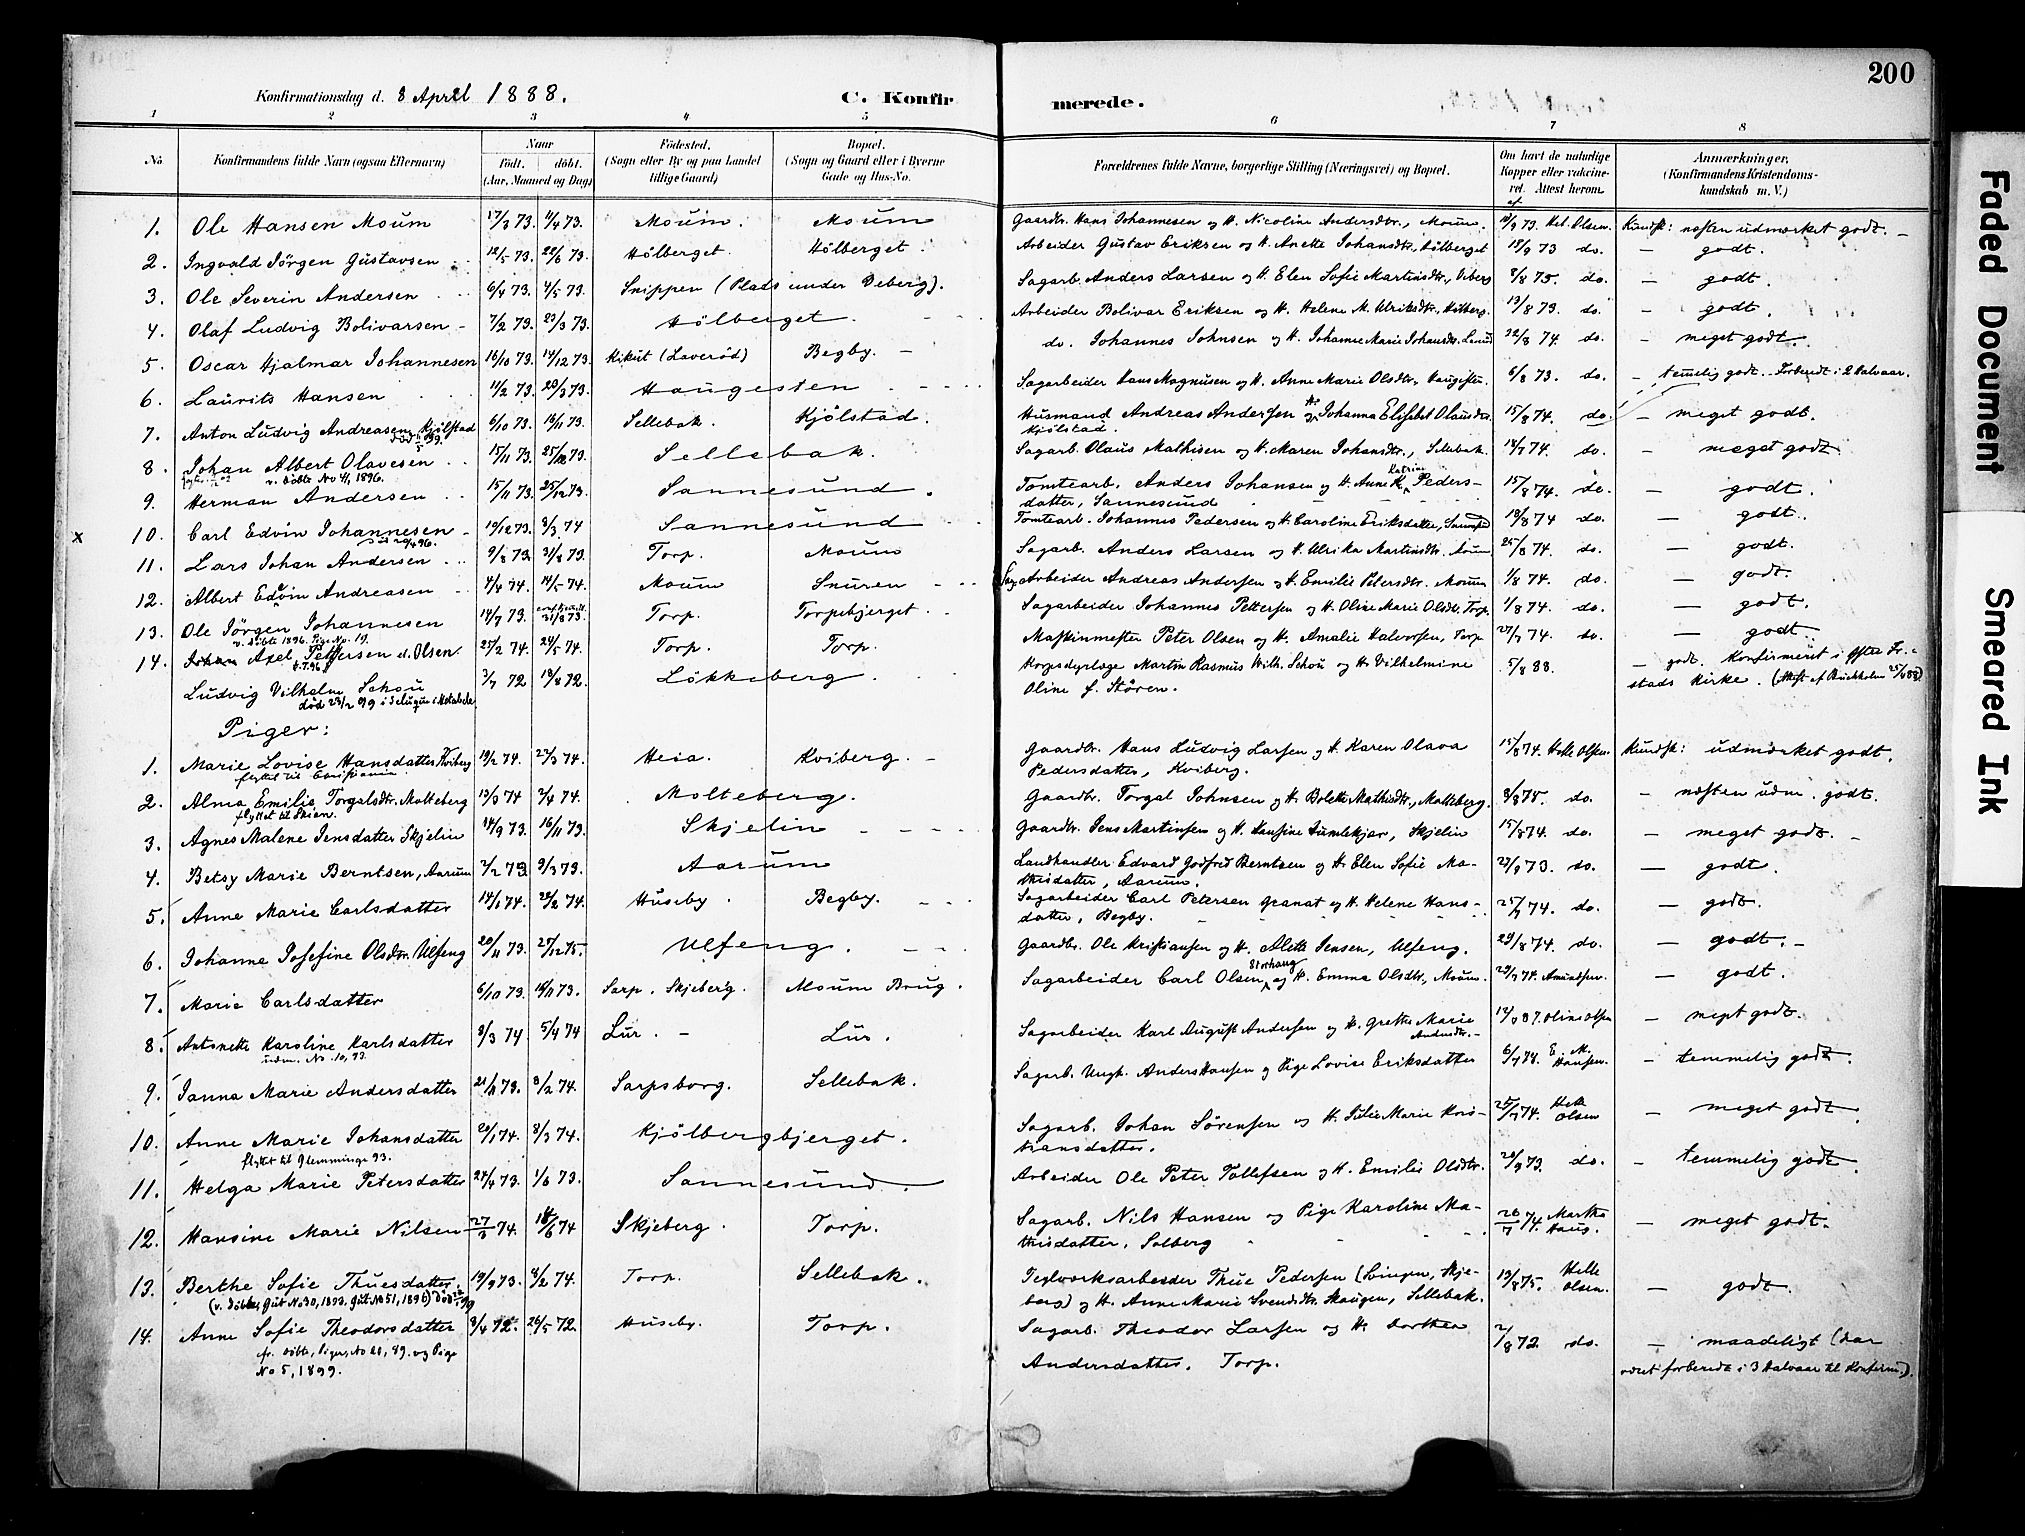 200
Konfirmationsdag d. 8 April 1888. C. Konfirmerede.
1 2 3 4 5 6 7 8
No. Konfirmandens fulde Navn (ogsaa Efternavn) Naar født. døbt. (Aar, Maaned og Dag) Fødested. (Sogn eller By og paa Landet tillige Gaard) Bopæl. (Sogn og Gaard eller i Byerne Gade og Hus-No. Forældrenes fulde Navne, borgerlige Stilling (Næringsvei) og Bopæl. Om havt de naturlige Kopper eller vaccineret. Attest herom. Anmærkninger. (Konfirmandens Kristendomskundskab m. V.)
1. Ole Hansen Moum 17/3 73. 11/4 73. Moum. Moum Gaardbr. Hans Johannesen og H. Nicoline Andersdtr., Moum. 18/9 73. Hel. Olsen. Kundsk: næsten udmærket godt.
2. Ingvald Jörgen Gustavsen 12/5 73. 22/6 73. Hölberget. Hölberget. Arbeider Gustav Eriksen og H. Anette Johansdtr., Hölberget 18/9 73 do. — godt.
3. Ole Severin Andersen 6/4 73. 4/5 73. Snippen (Plads under Veberg). Sagarb. Anders Larsen og H. Elen Sofie Martinsdtr., Viberg 8/8 75. do. — godt.
4. Olaf Ludvig Bolivarsen 7/2 73. 23/3 73. Hölberget. Arbeider Bolivar Eriksen og H. Helene M. Ulriksdtr., Hölberg. 13/8 73. do. — godt.
5. Oscar Hjalmar Johannesen 16/10 73. 14/12 73. Kikut (Laveröd) Begby. do. Johannes Johnsen og H. Johanne Marie Johansdtr. 22/8 74 do. — meget godt.
6. Laurits Hansen 11/2 73. 23/3 73. Haugesten Sagarbeider Hans Magnusen og H. Anne Marie Olsdtr., Haugesten. 6/8 73. do. — temmelig godt. Forberedt i 2 Halvaar.
7. Anton Ludvig Andreasen, Kjölstad 6/10 73. 16/11 73. Sellebak. Kjölstad. Husmand Andreas Andersen og H. Johanna Elisabet Olausdtr. Kjölstad. 15/8 74. do. — meget godt.
8. Johan Albert Olavesen 15/11 73. 25/12 73. Sellebak. Sagarb. Olaus Mathisen og H. Maren Johansdtr., Sellebak. 14/7 74. do. — meget godt
v. döbte No 4, 1896.
9. Herman Andersen 15/11 73. 25/12 73. Sannesund. Tomtearb. Anders Johansen og H. Anne K. Katrine Pedersdatter, Sannesund 15/8 74. do. — godt.
x 10. Carl Edvin Johannesen 19/12 73. 8/3 74 Sannesund Tomtearb. Johannes Pedersen og H. Caroline Eriksdatter, 18/8 74 do. — godt.
11. Lars Johan Andersen 9/8 73. 31/8 73. Torp. Moum Sagarb. Anders Larsen og H. Ulrika Martinsdtr. Moum 25/8 74. do. — godt.
12. Albert Edvin Andreasen 4/4 74. 14/5 74. Moum Snuren Sagarbeider Andreas Andersen og H. Emilie Petersdtr. Moum 1/8 74. do. — godt.
13. Ole Jörgen Johannesen 14/7 73. 31/8 73. Torp. Torpebjerget. Sagarbeider Johannes Pettersen og H. Oline Marie Olsdtr. Torp. 1/8 74. do. — godt.
v. döbte 1896. Pige No. 19.
14. Johan Axel Pettersen d. Olsen. 25/2 74. 24/5 74. Torp. Torp. Maskinmester Peter Olsen og H. Amalie Halvorsen, Torp 27/7 74. do. — godt.
Ludvig Vilhelm Schou 3/7 72 18/8 72. Lökkeberg Korpsdyrlæge Martin Rasmus Vilh. Schou og H. Vilhelmine Oline f. Stören. 5/8 83. — godt. Konfirmeret i Fr.stads Kirke.
Piger:
1. Marie Lovise Hansdatter Kviberg 19/2 74. 22/3 74. Heia. Kviberg. Gaardbr. Hans Ludvig Larsen og H. Karen Olava Pedersdatter, Kviberg. 15/8 74. Helle Olsen. Kundsk: udmærket godt.
flyttet til Christiania.
2. Alma Emilie Torgalsdtr. Molteberg 13/3 74 7/4 74. Molteberg. Gaardbr. Torgal Johnsen og H. Bolette Mathisdtr., Molteberg. 8/8 75. do. — næsten udm. godt.
flyttet til Skien.
3. Agnes Malene Jensdatter Skjelin 14/9 73. 16/11 73. Skjelin Gaardbr. Jens Martinsen og H. Hansine Tumlekjær, Skjelin 15/8 74. do. — meget godt.
4. Betsy Marie Berntsen, Aarum 2/2 73 9/3 73. Aarum Landhandler Edvard Godfred Berntsen og H. Elen Sofie Mathisdatter, Aarum. 23/9 73. do. — godt.
5. Anne Marie Carlsdatter 14/1 74. 22/2 74. Huseby. Begby. Sagarbeider Carl Petersen Granat og H. Helene Hansdatter, Begby. 25/7 74. do. — godt.
6. Johanne Josefine Olsdtr. Ulfeng 20/11 73. 25/12 75. Ulfeng. Gaardbr. Ole Kristiansen og H. Alette Jensen, Ulfeng. 29/8 74. do. — godt.
7. Marie Carlsdatter 6/10 73. 16/11 73. Sarp. Skjeberg. Moum Brug. Sagarbeider Carl Olsen Storhaug og H. Emma Olsdtr., Moum. 29/7 74. Amundsen. — godt.
8. Antonette Karoline Karlsdatter 8/3 74 5/4 74 Lur. Lur. Sagarbeider Karl August Andersen og H. Grethe Marie 14/9 87. Oline Olsen — meget godt.
9. Janna Marie Andersdatter 21/11 73. 8/2 74. Sarpsborg. Sellebak. Sagarb. Ungk. Anders Hansen og Pige Lovise Eriksdatter 6/7 74. E. M. Hansen. — temmelig godt.
10. Anne Marie Johansdatter 20/1 74. 8/3 74. Kjölbergbjerget. Sagarb. Johan Sörensen og H. Julie Marie Kristiansdatter. 25/7 74. Helle Olsen — meget godt
flyttet til Glemminge 93.
11. Helga Marie Petersdatter 24/4 73. 1/6 73. Sannesund. Arbeider Ole Peter Tollefsen og H. Emilie Olsdtr. 21/9 73. do. — temmelig godt.
12. Hansine Marie Nilsen 27/3 74. 14/6 74 Skjeberg. Torp. Sagarb. Nils Hansen og Pige Karoline Mathisdatter, Solberg 26/7 74. Marthe Haug. — meget godt.
13. Berthe Sofie Thuesdatter. 19/9 73. 8/2 74. Torp. Sellebak. Teglverksarbeider Thue Pedersen (Löingen, Skjeberg) og H. Anne Marie Svendsdtr. Skaugen, Sellebak. 19/8 75. Helle Olsen. — godt.
(v. döbte, Gut No 30, 1893. Gut No 51, 1896)
14. Anne Sofie Theodorsdatter 8/4 72. 26/5 72. Huseby. Torp. Sagarb. Theodor Larsen og H. Dorthea Andersdatter. Torp. 2/8 72. do. — maadeligt (har været forberedt i 3 Halvaar til Konfirm.).
fr. döbte, Piger, No 20, 89. og Pige No 5, 1899.
Faded Document Smeared Ink